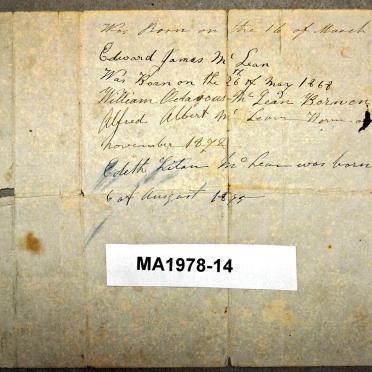 Was Born on the 16 of March
Edward James McLean
Was Born on the 26th of May 1868
William Octavous McLean Born on
Alfred Albert McLean Born
november 187
Edith McLean was born
6 of August 18
MA1978-14